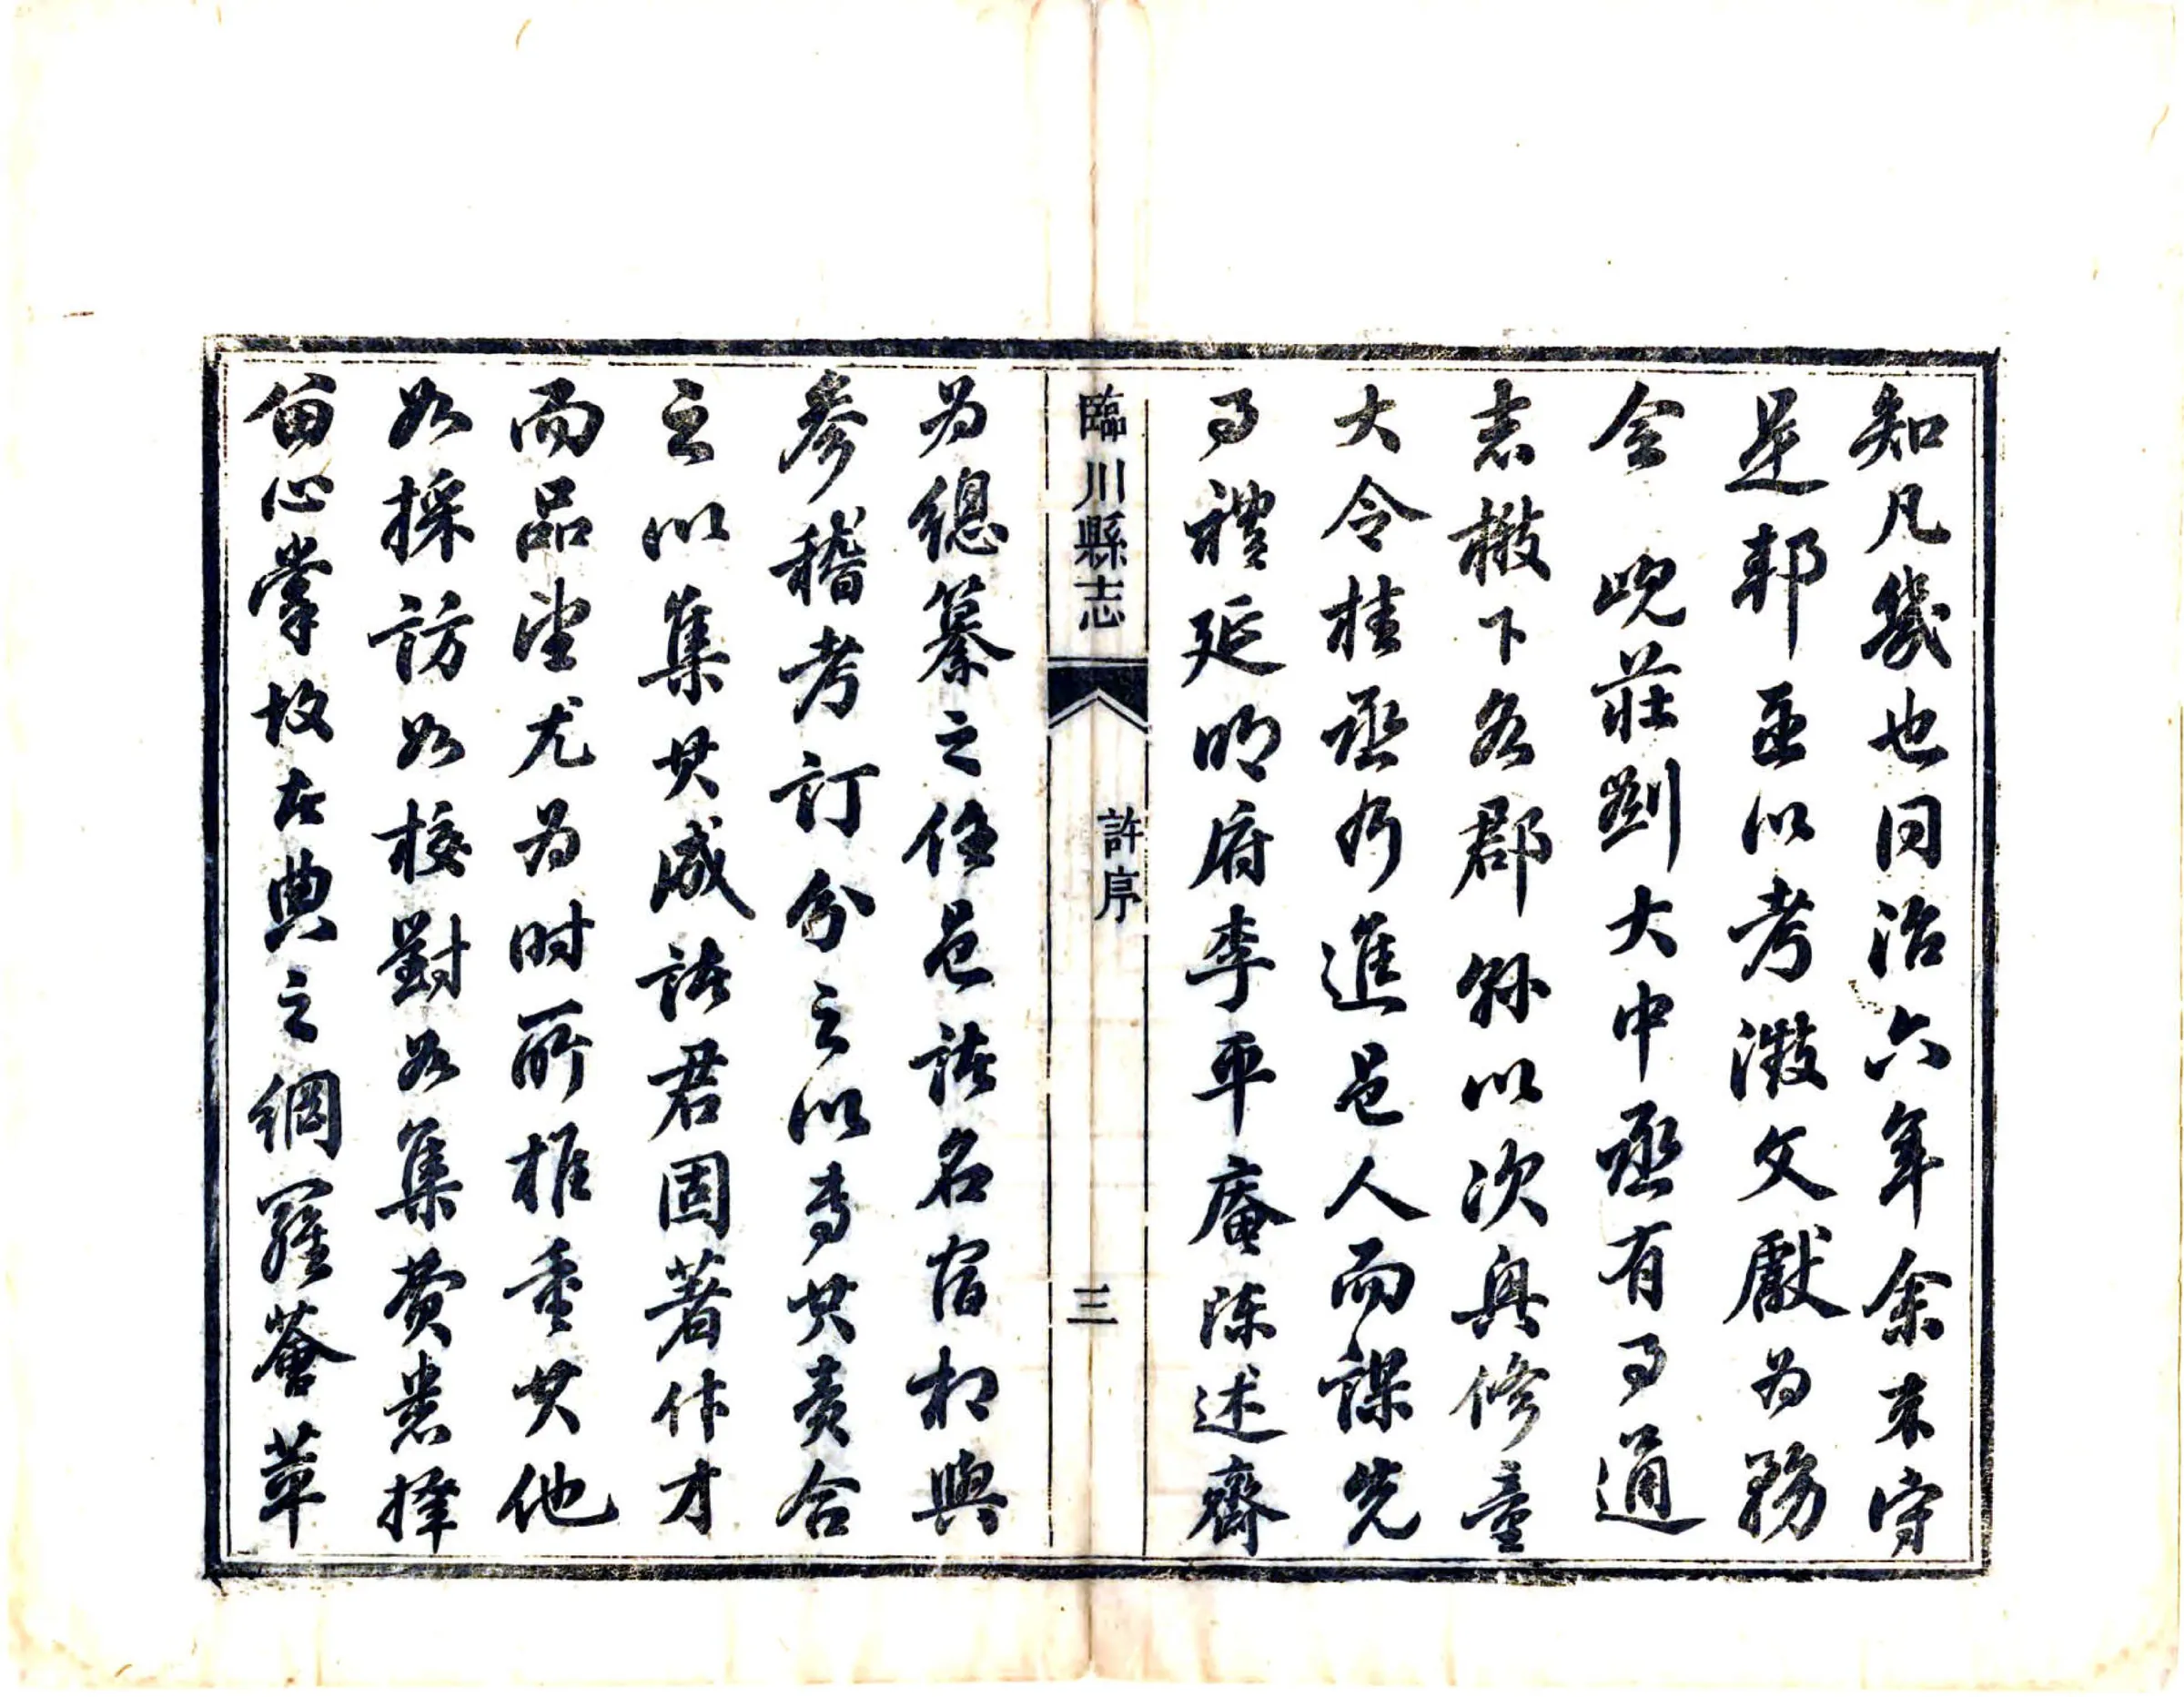 知凡幾也同治六年余來守
是邦亟以考澂文獻為務
會 峴莊劉大中丞有事通
志檄下各郡縣以次興修童
大令桂丞乃進邑人而謀先
事禮延明府李平庵陳述齋
臨川縣志 許序 三
為總纂之任邑諸名宿相與
參稽考訂分之以專其責合
之以集其成諸君固著作才
而品望尤為時所推重其他
如採訪如校對如集費悉擇
留心掌故在典之網羅薈萃